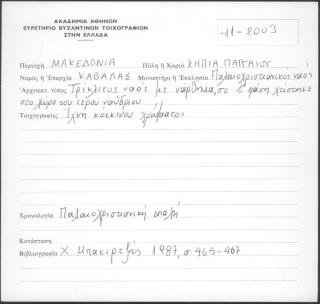 ΑΚΑΔΗΜΙΑ ΑΘΗΝΩΝ
ΕΥΡΕΤΗΡΙΟ ΒΥΖΑΝΤΙΝΩΝ ΤΟΙΧΟΓΡΑΦΙΩΝ
ΣΤΗΝ ΕΛΛΑΔΑ
-11-2003
Περιοχή ΜΑΚΕΔΟΝΙΑ Πόλη ή Χωριό ΚΗΠΙΑ ΠΑΓΓΑΙΟΥ
Νομός ή Ἐπαρχία ΚΑΒΑΛΑΣ Μοναστήρι ἤ Ἐκκλησία Παλαιοχριστιανικός ναός
Ἀρχιτεκτ. τύπος Τρίκλιτος ναός με νάρθηκα, σε β' φάση χτίστηκε
στο χώρο του ιερού ναΰδριου
Τοιχογραφίες Ίχνη κόκκινου χρώματος
Χρονολογία Παλαιοχριστιανική εποχή
Κατάσταση
Βιβλιογραφία Χ Μπακιρτζής 1987, σ. 465-467